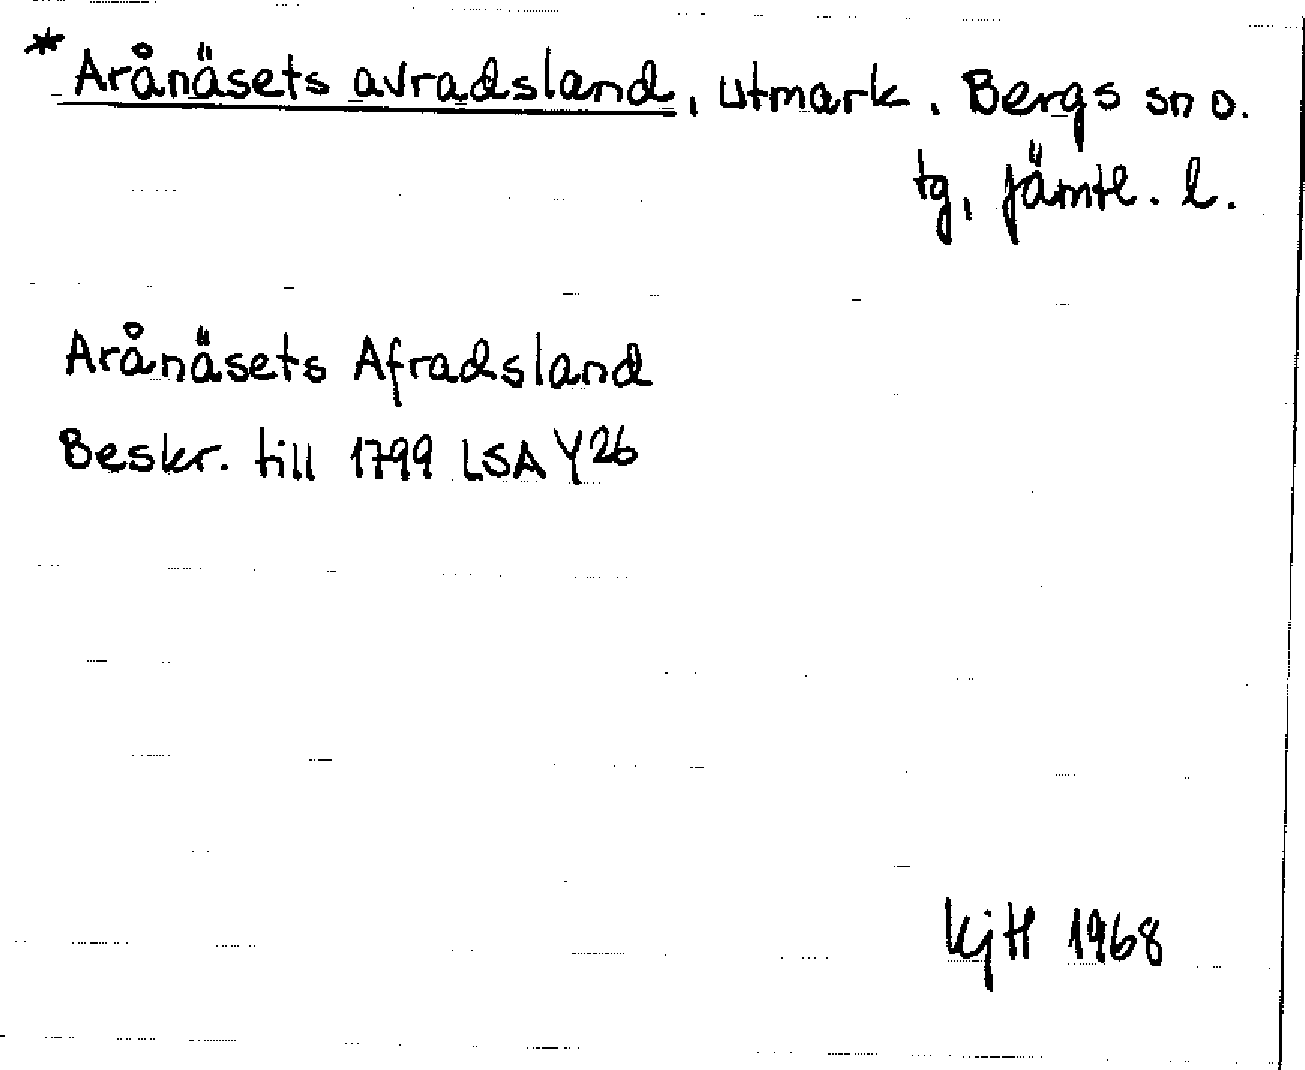 * Arånäsets avradsland, utmark. Bergs sn o.
tg, Jämtl. l.
Arånäsets Afradsland
Beskr. till 1799 LSA Y26
KjH 1968